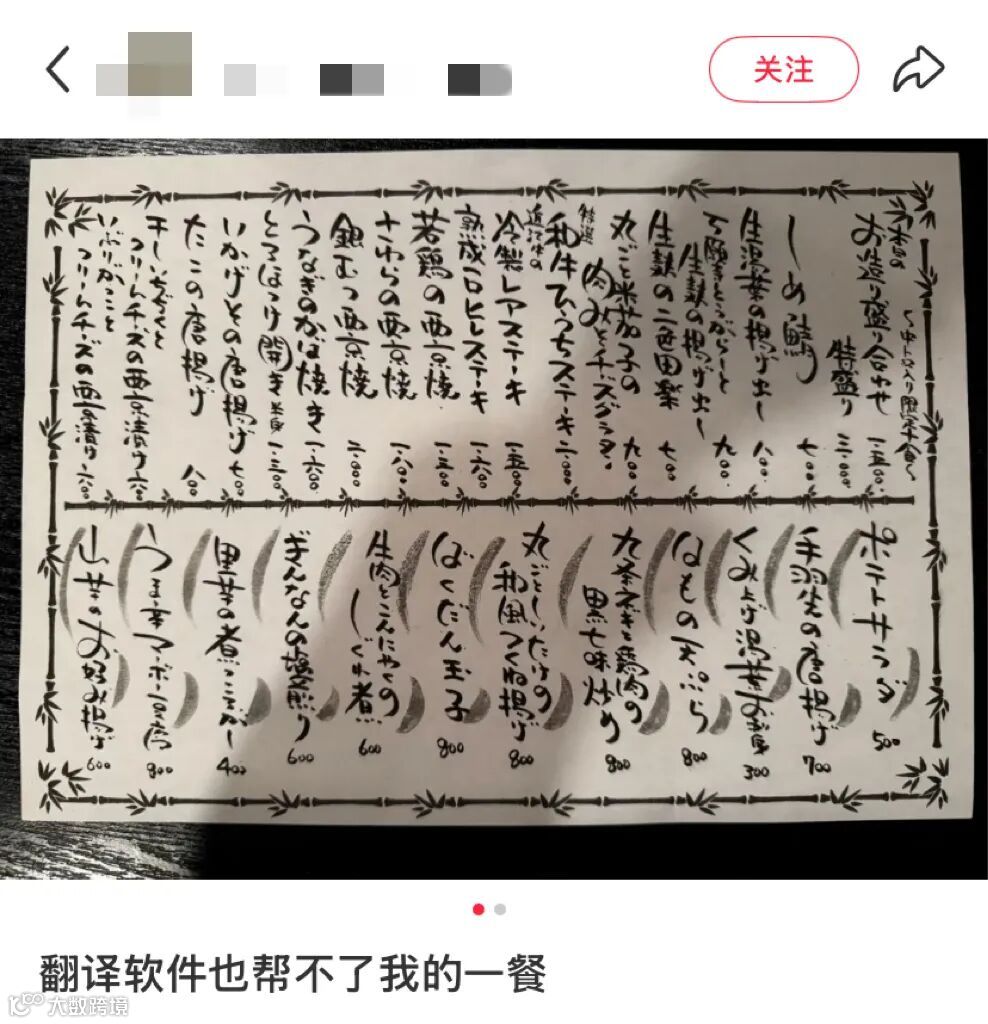 关注
本日の
お造り盛り合せ 一、五〇〇
特盛り 三、〇〇〇
しめ鯖 七〇〇
生湯葉の揚げ出し 八〇〇
万願寺とうがらしと
生麩の揚げ出し 九〇〇
生麩の二色田楽 七〇〇
丸ごと米茄子の
肉みそチーズグラタン 九〇〇
特選
和牛ひうちステーキ 二、〇〇〇
冷製レアステーキ 一、五〇〇
熟成一口ヒレステーキ 一、六〇〇
若鶏の西京焼
さわらの西京焼
銀むつ西京焼 二、〇〇〇
うなぎのかば焼き 一、六〇〇
とろほっけ開き 半身 一、三〇〇
いかげその唐揚げ 七〇〇
たこの唐揚げ 八〇〇
干しいちじくと
クリームチーズの西京漬け 六〇〇
いぶりがっこと
クリームチーズの西京漬け 六〇〇
ポテトサラダ 500
手羽先の唐揚げ 700
くみ上げ湯葉お刺身 300
はもの天ぷら 800
九条ネギと鶏肉の
黒七味炒め 800
丸ごとしいたけの
和風つくね揚げ 800
ばくだん玉子 800
牛肉とこんにゃくの
しぐれ煮 600
ぎんなんの塩煎り 600
里芋の煮っころがし 400
うま辛マーボー豆腐 800
山芋のお好み揚げ 600
翻译软件也帮不了我的一餐
大数跨境